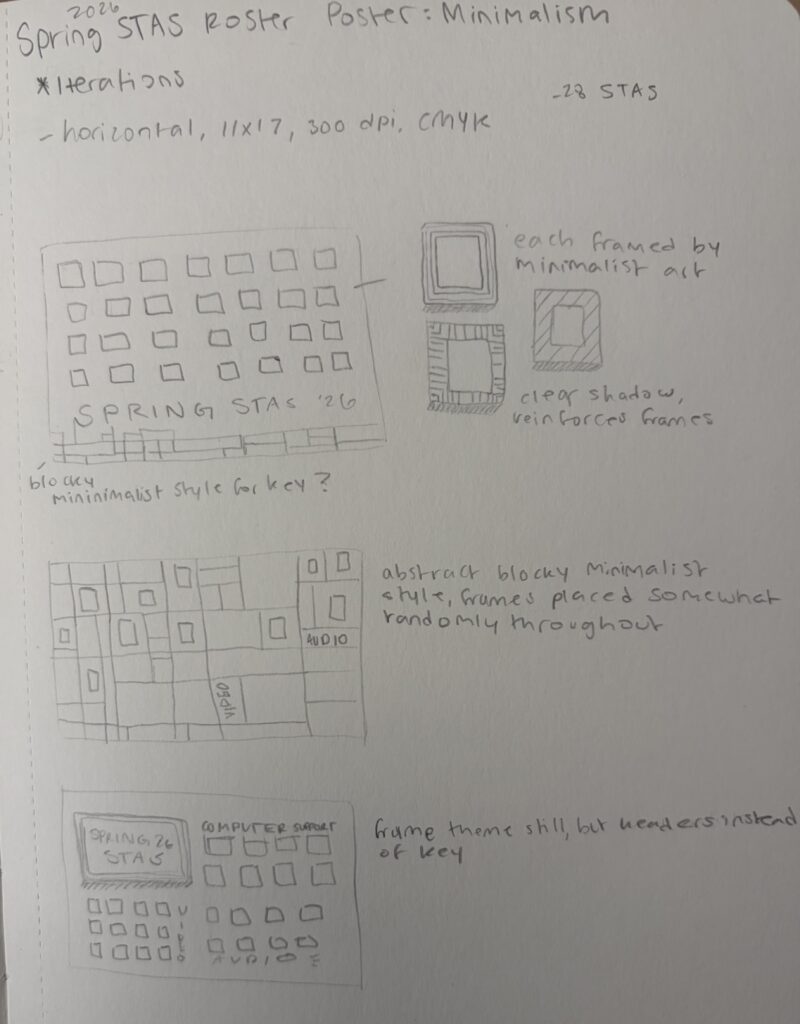 2026
Spring STAS Roster Poster: Minimalism
*Iterations
-28 STAS
- horizontal, 11x17, 300 dpi, CMYK
each framed by
minimalist art
SPRING STAS '26
clear shadow,
reinforces frames
blocky
mininimalist style for key?
abstract blocky minimalist
style, frames placed somewhat
randomly throughout
AUDIO
VIDEO
COMPUTER SUPPORT
SPRING 26
STAS
frame theme still, but headers instead
of key
VIDEO